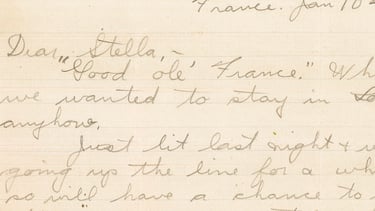 France. Jan 10
Dear Stella,-
"Good ole' France." Wh
we wanted to stay in
anyhow.
Just lit last night + w
going up the line for a wh
so will have a chance to